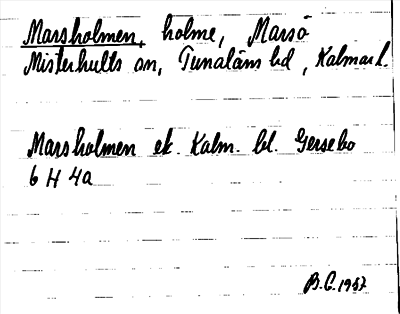 Marsholmen, holme, Marsö
Misterhults sn, Tunaläns hd, Kalmar l.
Marsholmen ek. Kalm. bl. Gersebo
6 H 4a
B.C. 1957